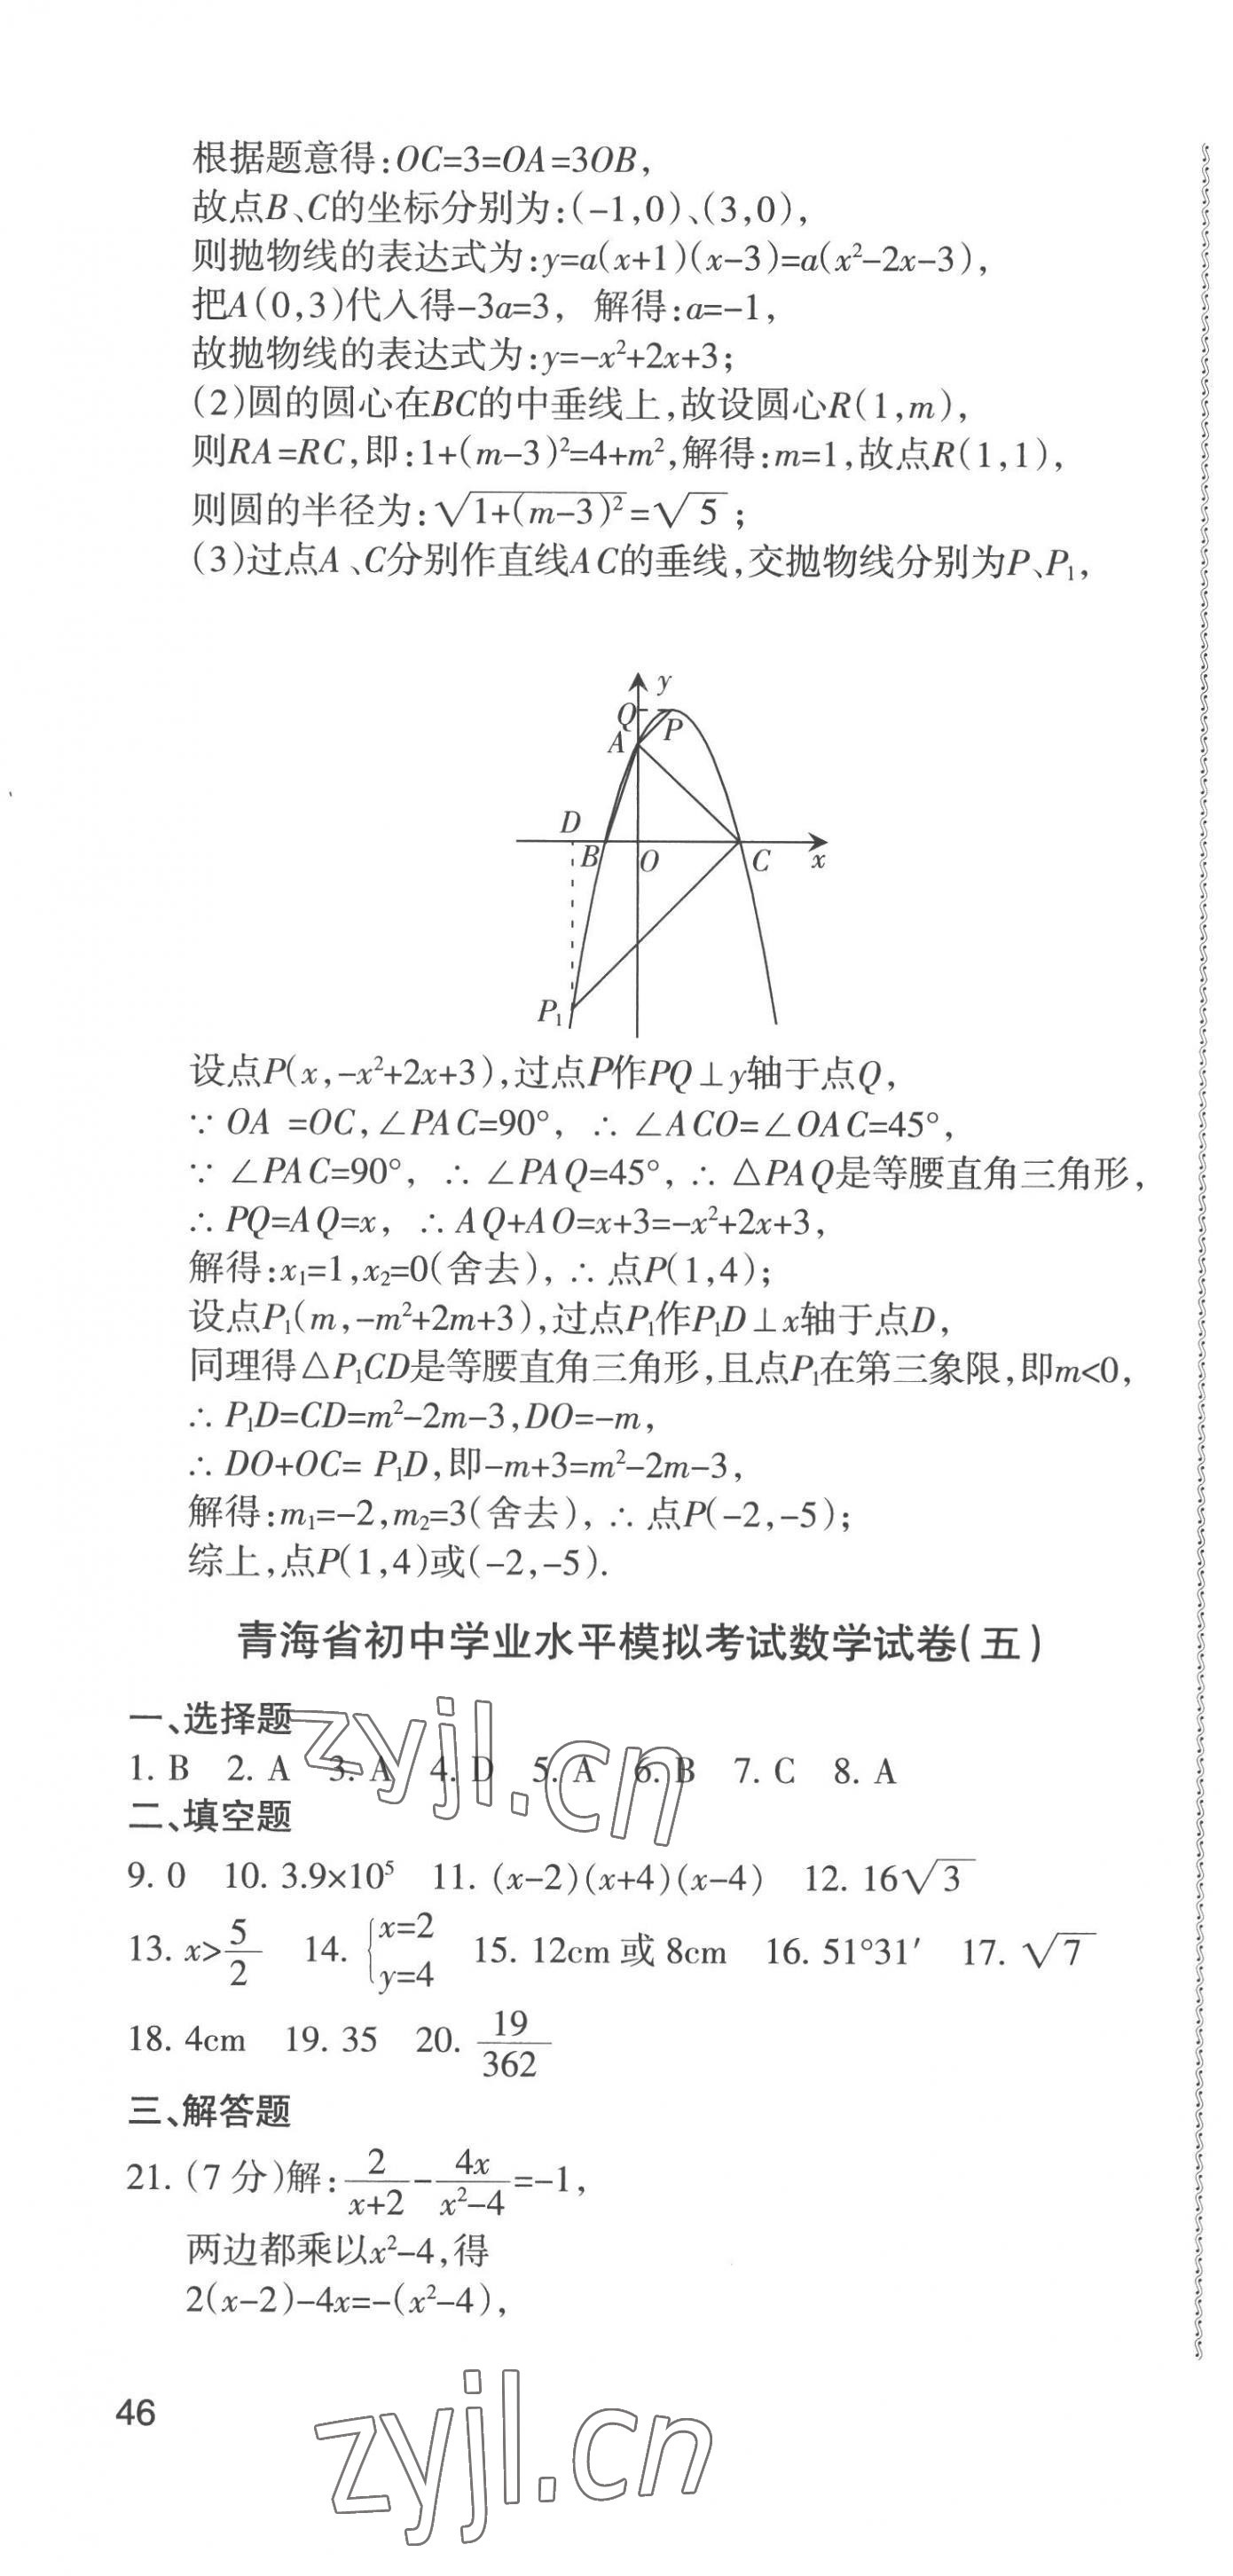 根据题意得:OC=3=OA=3OB,
故点B、C的坐标分别为:(-1,0)、(3,0),
则抛物线的表达式为:y=a(x+1)(x-3)=a(x²-2x-3),
把A(0,3)代入得-3a=3, 解得:a=-1,
故抛物线的表达式为:y=-x²+2x+3;
(2)圆的圆心在BC的中垂线上,故设圆心R(1,m),
则RA=RC,即:1+(m-3)²=4+m²,解得:m=1,故点R(1,1),
则圆的半径为:√(1+(m-3)²)=√5;
(3)过点A、C分别作直线AC的垂线,交抛物线分别为P、P₁,
y
Q
P
A
D
B
O
C
x
P₁
设点P(x,-x²+2x+3),过点P作PQ⊥y轴于点Q,
∵ OA =OC,∠PAC=90°, ∴ ∠ACO=∠OAC=45°,
∵ ∠PAC=90°, ∴ ∠PAQ=45°, ∴ △PAQ是等腰直角三角形,
∴ PQ=AQ=x, ∴ AQ+AO=x+3=-x²+2x+3,
解得:x₁=1,x₂=0(舍去), ∴ 点P(1,4);
设点P₁(m,-m²+2m+3),过点P₁作P₁D⊥x轴于点D,
同理得△P₁CD是等腰直角三角形,且点P₁在第三象限,即m<0,
∴ P₁D=CD=m²-2m-3,DO=-m,
∴ DO+OC= P₁D,即-m+3=m²-2m-3,
解得:m₁=-2,m₂=3(舍去), ∴ 点P(-2,-5);
综上,点P(1,4)或(-2,-5).
青海省初中学业水平模拟考试数学试卷(五)
一、选择题
1. B 2. A 3. A 4. D 5. A 6. B 7. C 8. A
二、填空题
9. 0 10. 3.9×10⁵ 11. (x-2)(x+4)(x-4) 12. 16√3
13. x>5/2 14. {x=2 y=4 15. 12cm 或 8cm 16. 51°31′ 17. √7
18. 4cm 19. 35 20. 19/362
三、解答题
21. (7 分)解: 2/(x+2) - 4x/(x²-4) =-1,
两边都乘以x²-4,得
2(x-2)-4x=-(x²-4),
46
zyjl.cn
zyjl.cn